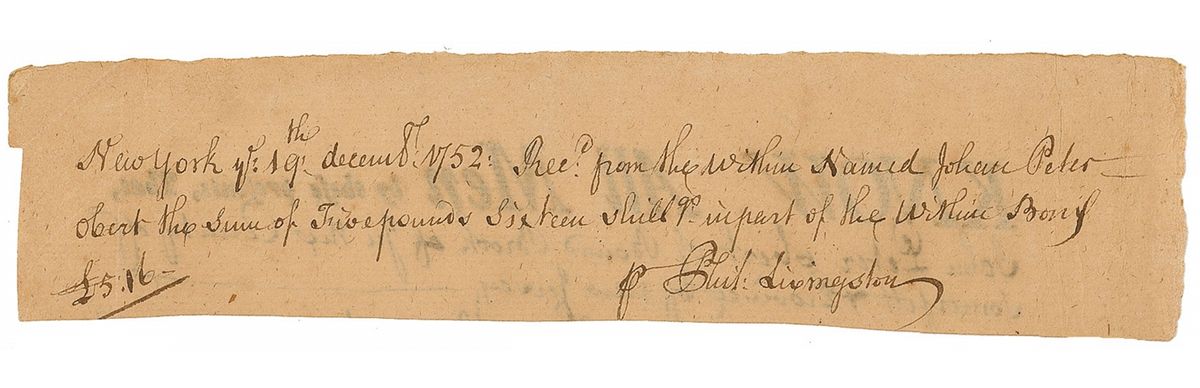 New York ye. 19th. decembr. 1752: Recd. from the Within Named Johan Peter
obert the Sum of Five pounds Sixteen shillgs. in part of the Within Bond
£5:16- p Phil: Livingston